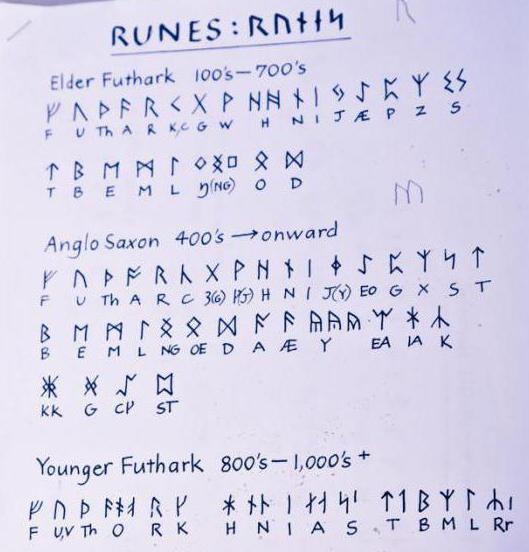 RUNES: ᚱᚢᚾᚾᛁᛋ
Elder Futhark 100's—700's
ᚠ ᚢ ᚦ ᚨ ᚱ ᚲ ᚷ ᚹ ᚺ ᚻ ᚾ ᛁ ᛃ ᛇ ᛈ ᛉ ᛊ ᛋ
F U Th A R K,C G W H N I J Æ P Z S
ᛏ ᛒ ᛖ ᛗ ᛚ ᛜ ᛝ ᛟ ᛞ
T B E M L Ŋ(NG) O D
Anglo Saxon 400's → onward
ᚠ ᚢ ᚦ ᚩ ᚱ ᚳ ᚷ ᚹ ᚻ ᚾ ᛁ ᛄ ᛇ ᛈ ᛉ ᛋ ᛏ
F U Th A R C 3(G) H N I J(Y) EO G X S T
ᛒ ᛖ ᛗ ᛚ ᛝ ᛟ ᛞ ᚪ ᚫ ᚣ ᛠ ᛡ ᛣ
B E M L NG OE D A Æ Y EA IA K
KK G ST
Younger Futhark 800's—1,000's +
ᚠ ᚢ ᚦ ᚬ ᚱ ᚴ ᚼ ᚾ ᚿ ᛁ ᛅ ᛆ ᛋ ᛌ ᛏ ᛐ ᛒ ᛘ ᛚ ᛦ
F U,V Th O R K H N I A S T B M L Rr